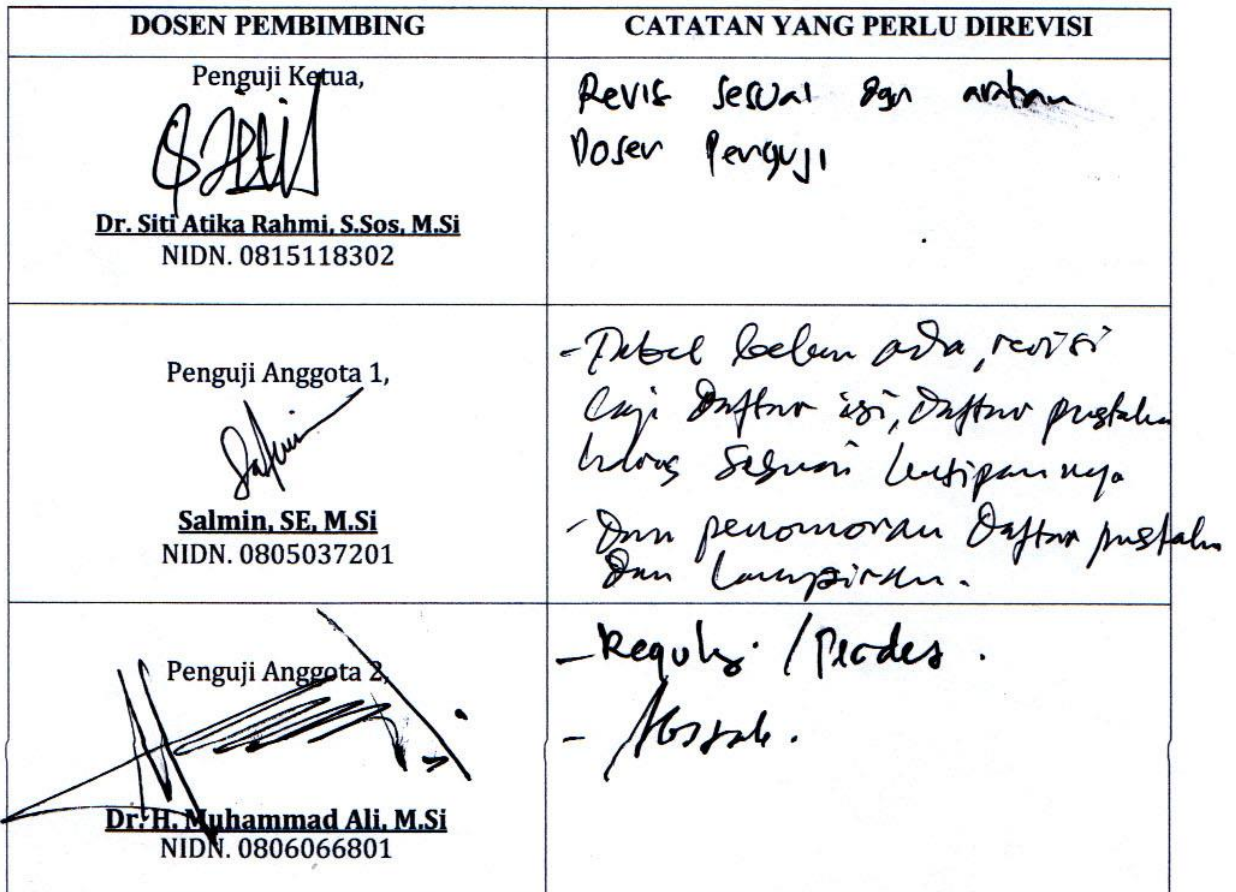 DOSEN PEMBIMBING
CATATAN YANG PERLU DIREVISI
Penguji Ketua,
Dr. Siti Atika Rahmi, S.Sos, M.Si
NIDN. 0815118302
Revisi sesuai dgn arahan
Dosen Penguji
Penguji Anggota 1,
Salmin, SE, M.Si
NIDN. 0805037201
- Tabel belum ada, revisi
lagi Daftar isi, Daftar pustaka
harus sesuai kutipannya
- Dan penomoran Daftar pustaka
Dan Lampiran.
Penguji Anggota 2,
Dr. H. Muhammad Ali, M.Si
NIDN. 0806066801
- Regulasi / Perdes.
- Abstrak.